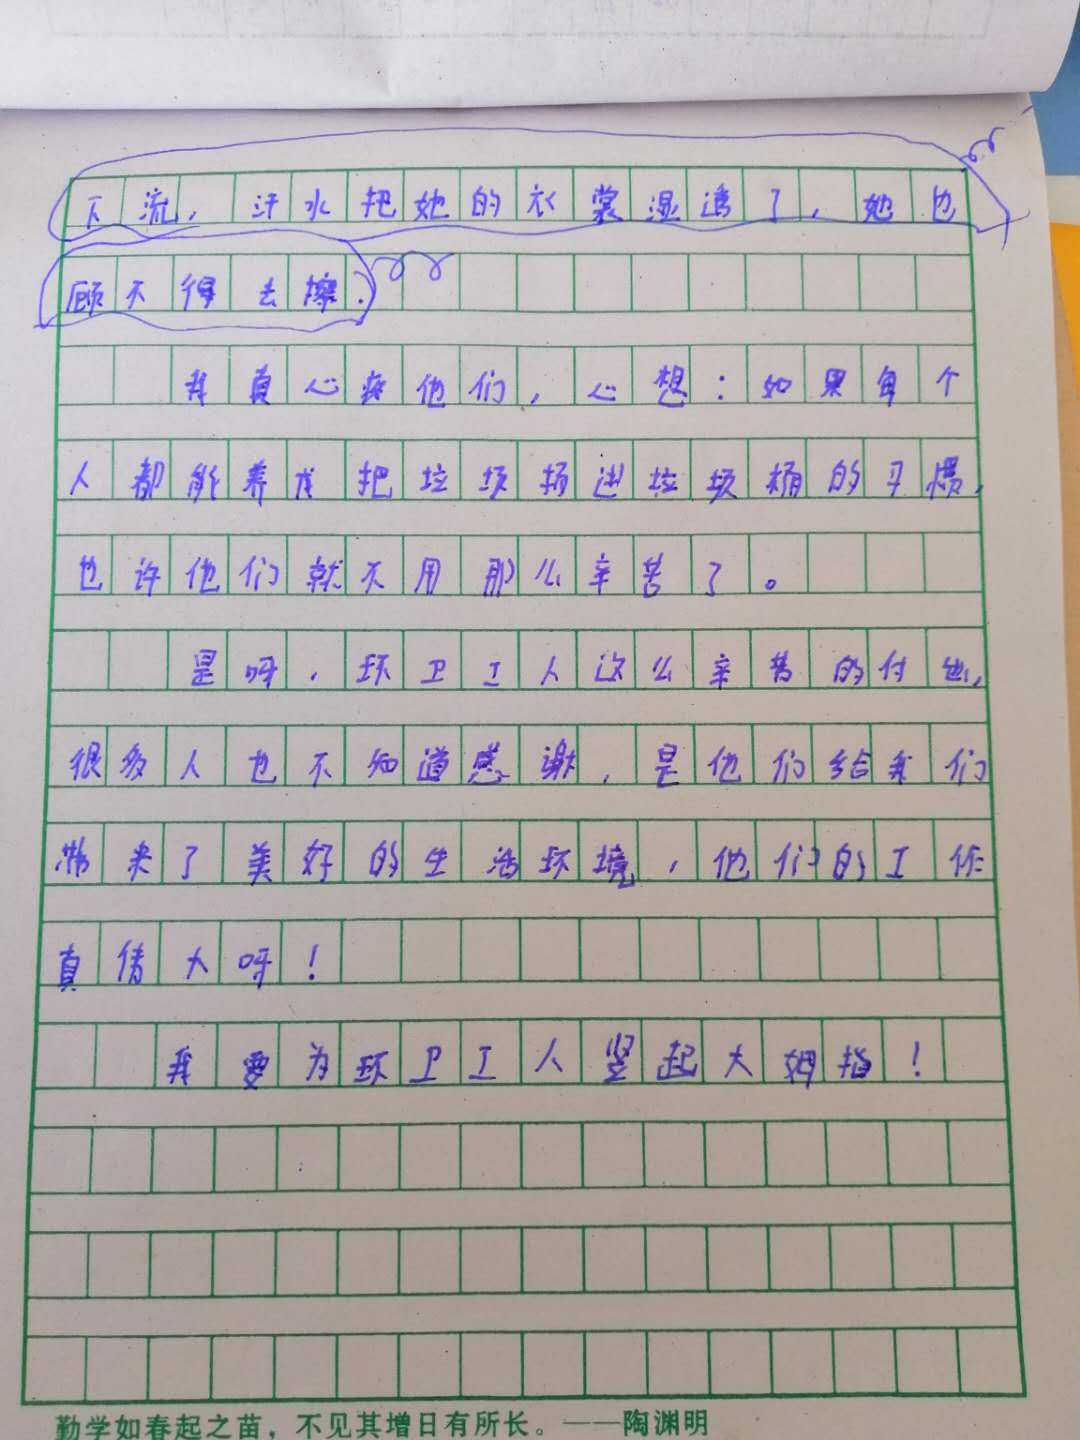 下流，汗水把她的衣裳湿透了，她也
顾不得去擦.
我真心疼他们，心想：如果每个
人都能养成把垃圾扔进垃圾桶的习惯，
也许他们就不用那么辛苦了。
是呀，环卫工人这么辛苦的付出，
很多人也不知道感谢，是他们给我们
带来了美好的生活环境，他们的工作
真伟大呀！
我要为环卫工人竖起大姆指！
勤学如春起之苗，不见其增日有所长。——陶渊明